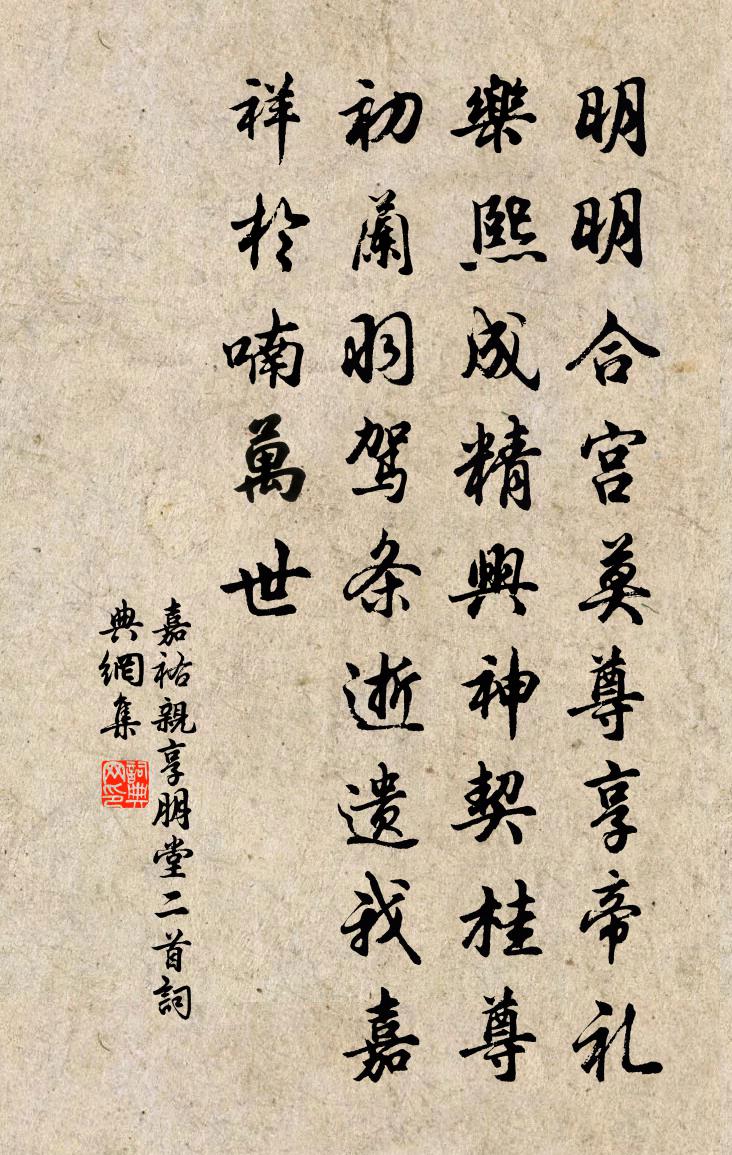 明明合宫莫尊享帝礼
樂熙成精興神契桂尊
初蘭羽驾条逝遗我嘉
祥於喃萬世
嘉祐親享明堂二首詞
典網集
詞典
网印